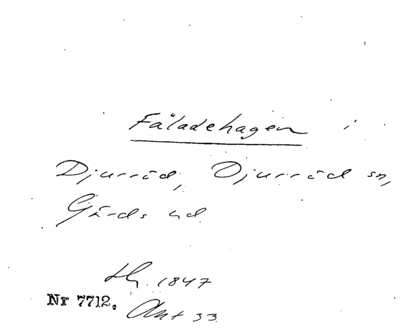 Fåladehagen i
Djurröd, Djurröd sn,
Gärds hd
1847
Nr 7712. Akt 33